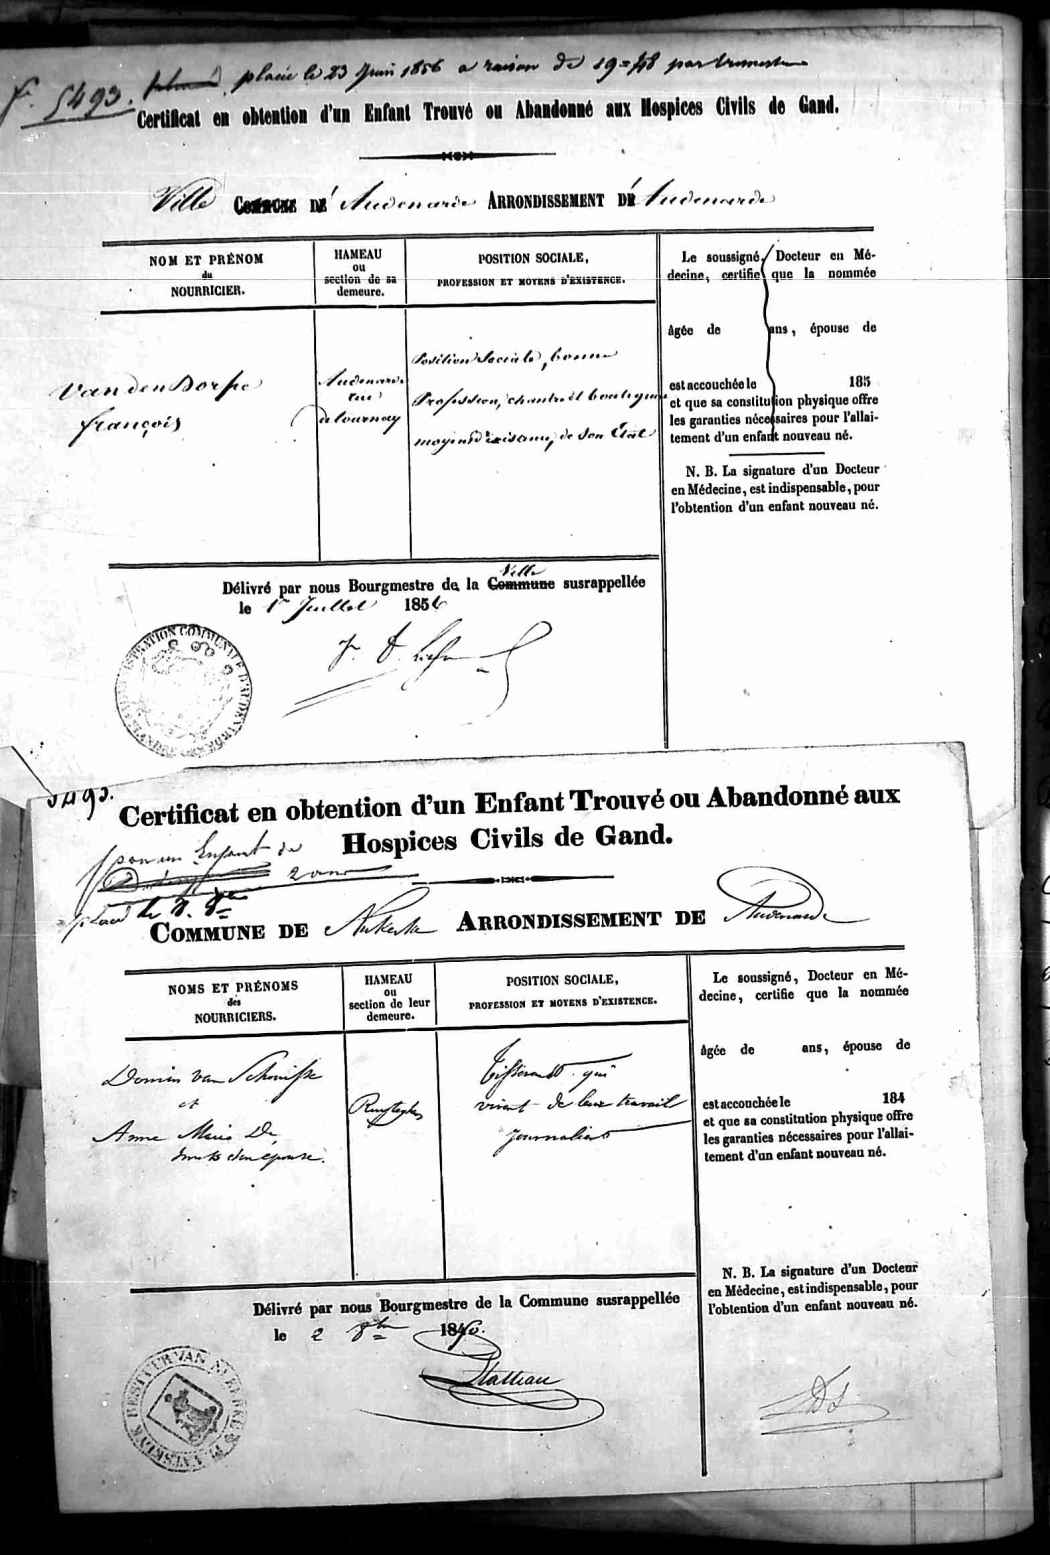 f. 5493. placée le 23 Juin 1856 a raison de 19=48 par trimestre
Certificat en obtention d'un Enfant Trouvé ou Abandonné aux Hospices Civils de Gand.
Ville COMMUNE DE Audenarde ARRONDISSEMENT DE Audenarde
NOM ET PRÉNOM
du
NOURRICIER.
HAMEAU
ou
section de sa
demeure.
POSITION SOCIALE,
PROFESSION ET MOYENS D'EXISTENCE.
Van den Dorpe
françois
Audenarde
rue
de tournay
Position Sociale, bonne
Profession, chantre et boutiquier
moyens d'existance, de Son État
Le soussigné, Docteur en Mé-
decine, certifie que la nommée
âgée de ans, épouse de
est accouchée le 185
et que sa constitution physique offre
les garanties nécessaires pour l'allai-
tement d'un enfant nouveau né.
N. B. La signature d'un Docteur
en Médecine, est indispensable, pour
l'obtention d'un enfant nouveau né.
Ville
Délivré par nous Bourgmestre de la Commune susrappellée
le 1r Juillet 1856
5493.
Certificat en obtention d'un Enfant Trouvé ou Abandonné aux
Hospices Civils de Gand.
pour un Enfant de
2 ans
placé le 3. 8re
COMMUNE DE Nukerke ARRONDISSEMENT DE Audenarde
NOMS ET PRÉNOMS
des
NOURRICIERS.
HAMEAU
ou
section de leur
demeure.
POSITION SOCIALE,
PROFESSION ET MOYENS D'EXISTENCE.
Domin van Schouisse
et
Anne Marie De
son épouse.
Tisserand qui
vivent de leur travail
journalier
Le soussigné, Docteur en Mé-
decine, certifie que la nommée
âgée de ans, épouse de
est accouchée le 184
et que sa constitution physique offre
les garanties nécessaires pour l'allai-
tement d'un enfant nouveau né.
N. B. La signature d'un Docteur
en Médecine, est indispensable, pour
l'obtention d'un enfant nouveau né.
Délivré par nous Bourgmestre de la Commune susrappellée
le 2 8bre 1850.